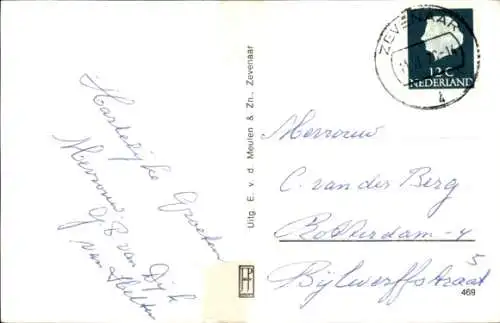 Hartelijke Groeten
Mevrouw
G.B van Dijk
van Helten
Uitg. E. v. d. Meulen & Zn., Zevenaar
ZEVENAAR
12 C
NEDERLAND
4
Mevrouw
C. van der Berg
Rotterdam-4
Bijlwerffstraat
5
469